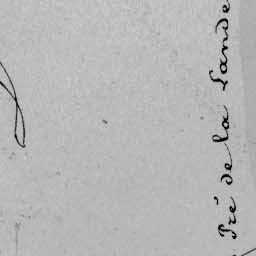 Pré de la Lande